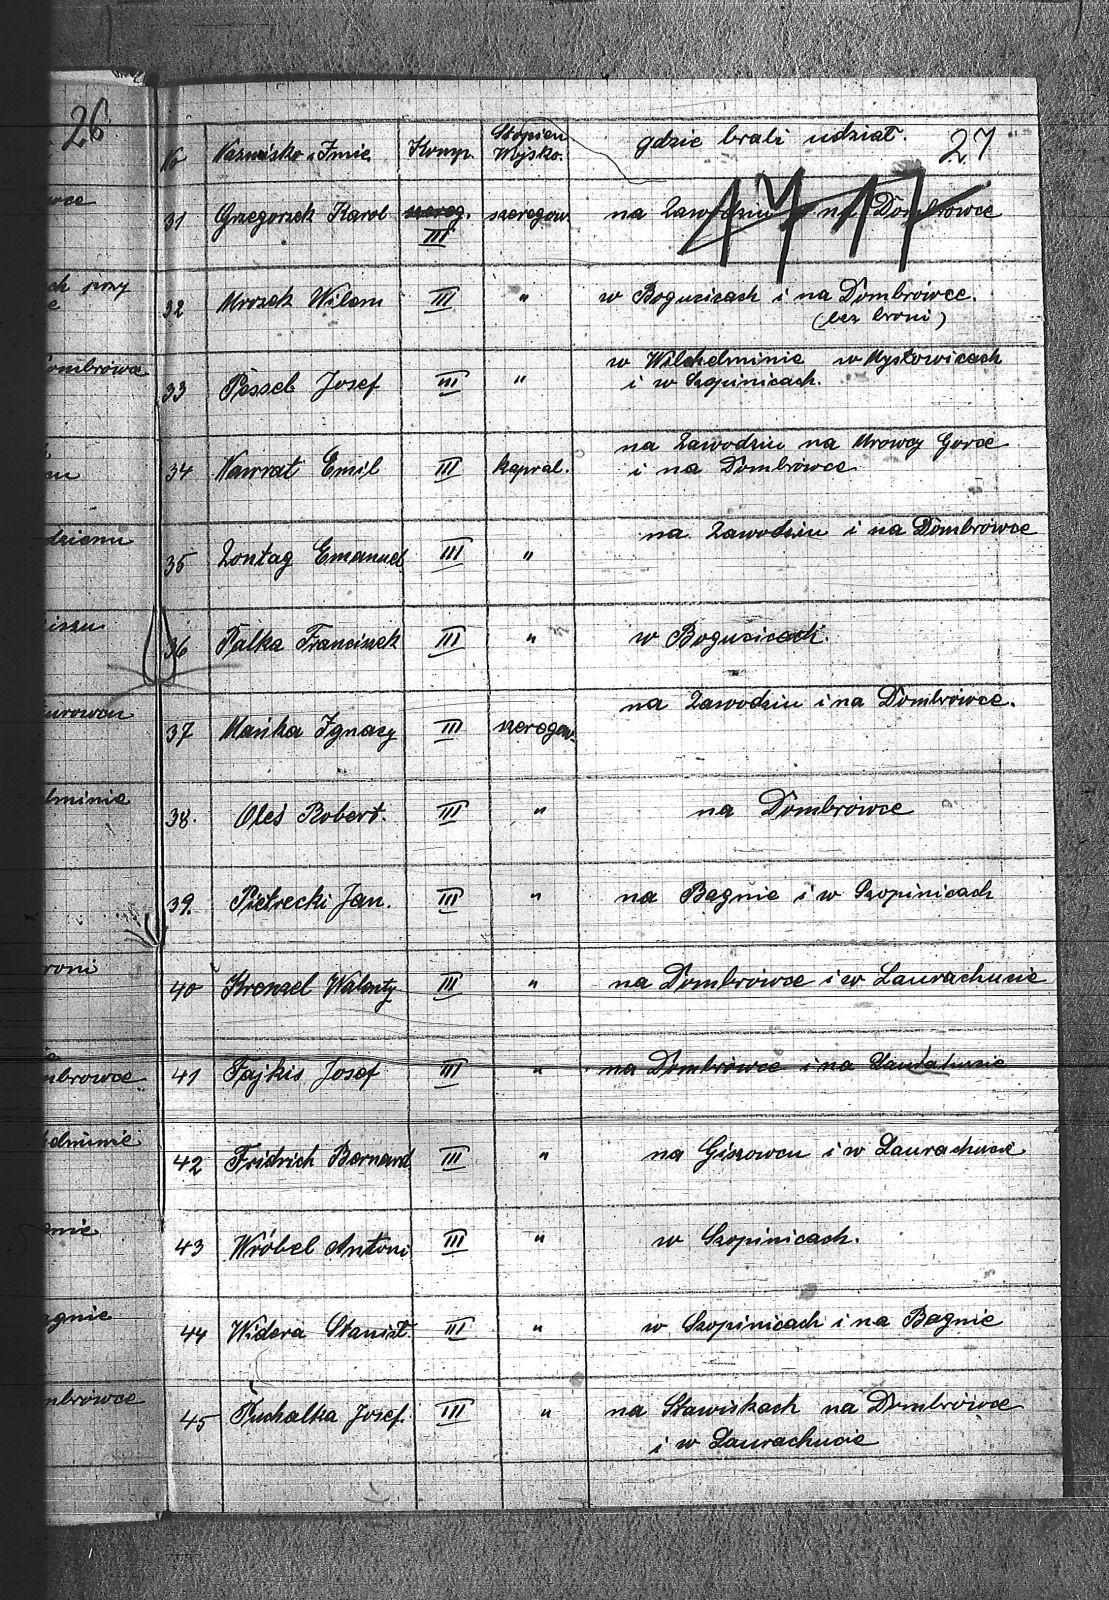 26
27
1717
Nr Nazwisko i Imie Komp. Stopien Wojsko. gdzie brali udział.
31 Grzegorzek Karol szereg. III szeregow. na Zawodziu i na Dombrowce
32 Mrozek Wilem III " w Bogucicach i na Dombrówce.
(bez broni)
33 Pessel Josef III " w Wilchelminie w Mysłowicach
i w Szopinicach.
34 Nawrat Emil III kapral. na Zawodziu na Mrowcy Gorce
i na Dombrówce
35 Zontag Emanuel III " na Zawodziu i na Dombrowce
36 Palka Franciszek III " w Bogucicach.
37 Mańka Ignacy III szeregow. na Zawodziu i na Dombrówce.
38. Oleś Robert. III " na Dombrówce
39. Pietrecki Jan. III " na Bagnie i w Szopinicach
40 Krenzel Walenty III " na Dombrówce i w Laurachucie
41 Fajkis Josef III " na Dombrówce i na Laurahucie
42 Fridrich Bernard III " na Giszowcu i w Laurachucie
43 Wróbel Antoni III " w Szopinicach.
44 Widera Stanisł. III " w Szopinicach i na Bagnie
45 Puchalka Jozef. III " na Stawiskach na Dombrówce
i w Laurachucie